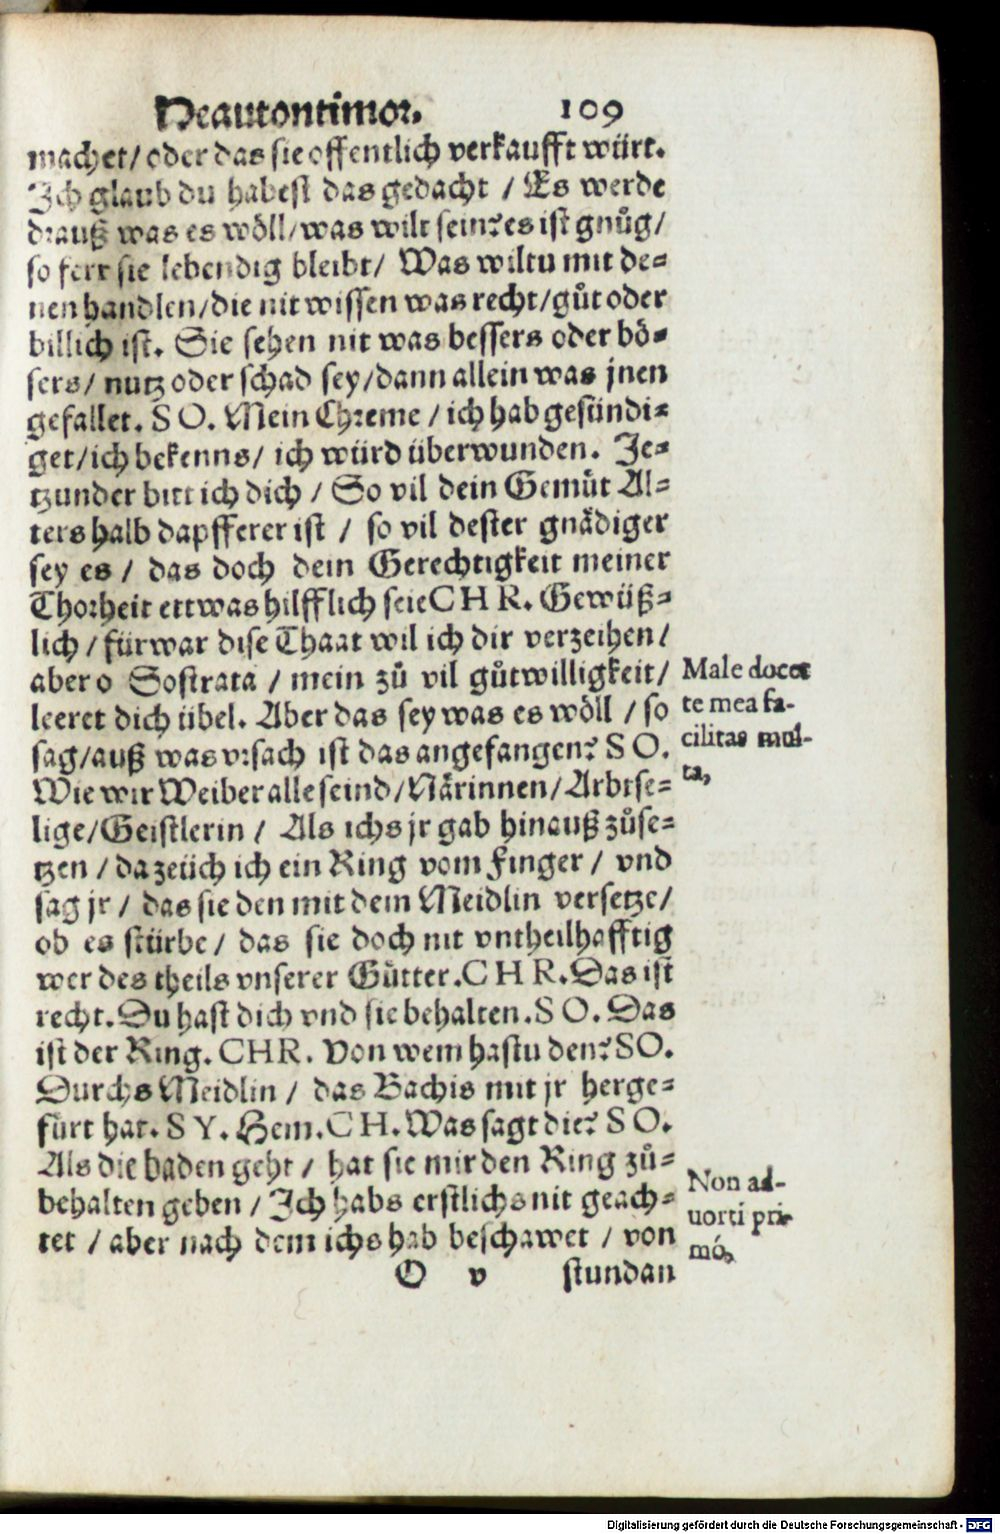 Heautontimor. 109
machet/ oder das sie offentlich verkaufft würt.
Ich glaub du habest das gedacht / Es werde
drauß was es wöll/ was wilt sein? es ist gnůg/
so ferr sie lebendig bleibt/ Was wiltu mit de-
nen handlen/die nit wissen was recht/gůt oder
billich ist. Sie sehen nit was bessers oder bö-
sers/ nutz oder schad sey/dann allein was jnen
gefallet. SO. Mein Chreme / ich hab gesündi-
get/ich bekenns/ ich würd überwunden. Je-
tzunder bitt ich dich / So vil dein Gemůt Al-
ters halb dapfferer ist / so vil dester gnädiger
sey es / das doch dein Gerechtigkeit meiner
Thorheit ettwas hilfflich seie CHR. Gewüß-
lich / fürwar dise Thaat wil ich dir verzeihen/
aber o Sostrata / mein zů vil gůtwilligkeit/
leeret dich übel. Aber das sey was es wöll / so
sag/auß was vrsach ist das angefangen? SO.
Wie wir Weiber alle seind/Närinnen/Arbtse-
lige/Geistlerin / Als ichs jr gab hinauß zůse-
tzen / da zeüch ich ein Ring vom Finger / vnd
sag jr / das sie den mit dem Meidlin versetze/
ob es stürbe / das sie doch nit vntheilhafftig
wer des theils vnserer Gütter. CHR. Das ist
recht. Du hast dich vnd sie behalten. SO. Das
ist der Ring. CHR. Von wem hastu den? SO.
Durchs Meidlin / das Bachis mit jr herge-
fürt hat. SY. Hem. CH. Was sagt die? SO.
Als die baden geht / hat sie mir den Ring zů-
behalten geben / Ich habs erstlichs nit geach-
tet / aber nach dem ichs hab beschawet / von
O v stundan
Male docet
te mea fa-
cilitas mul-
ta,
Non ad-
uorti pri-
mó,
Digitalisierung gefördert durch die Deutsche Forschungsgemeinschaft - DFG